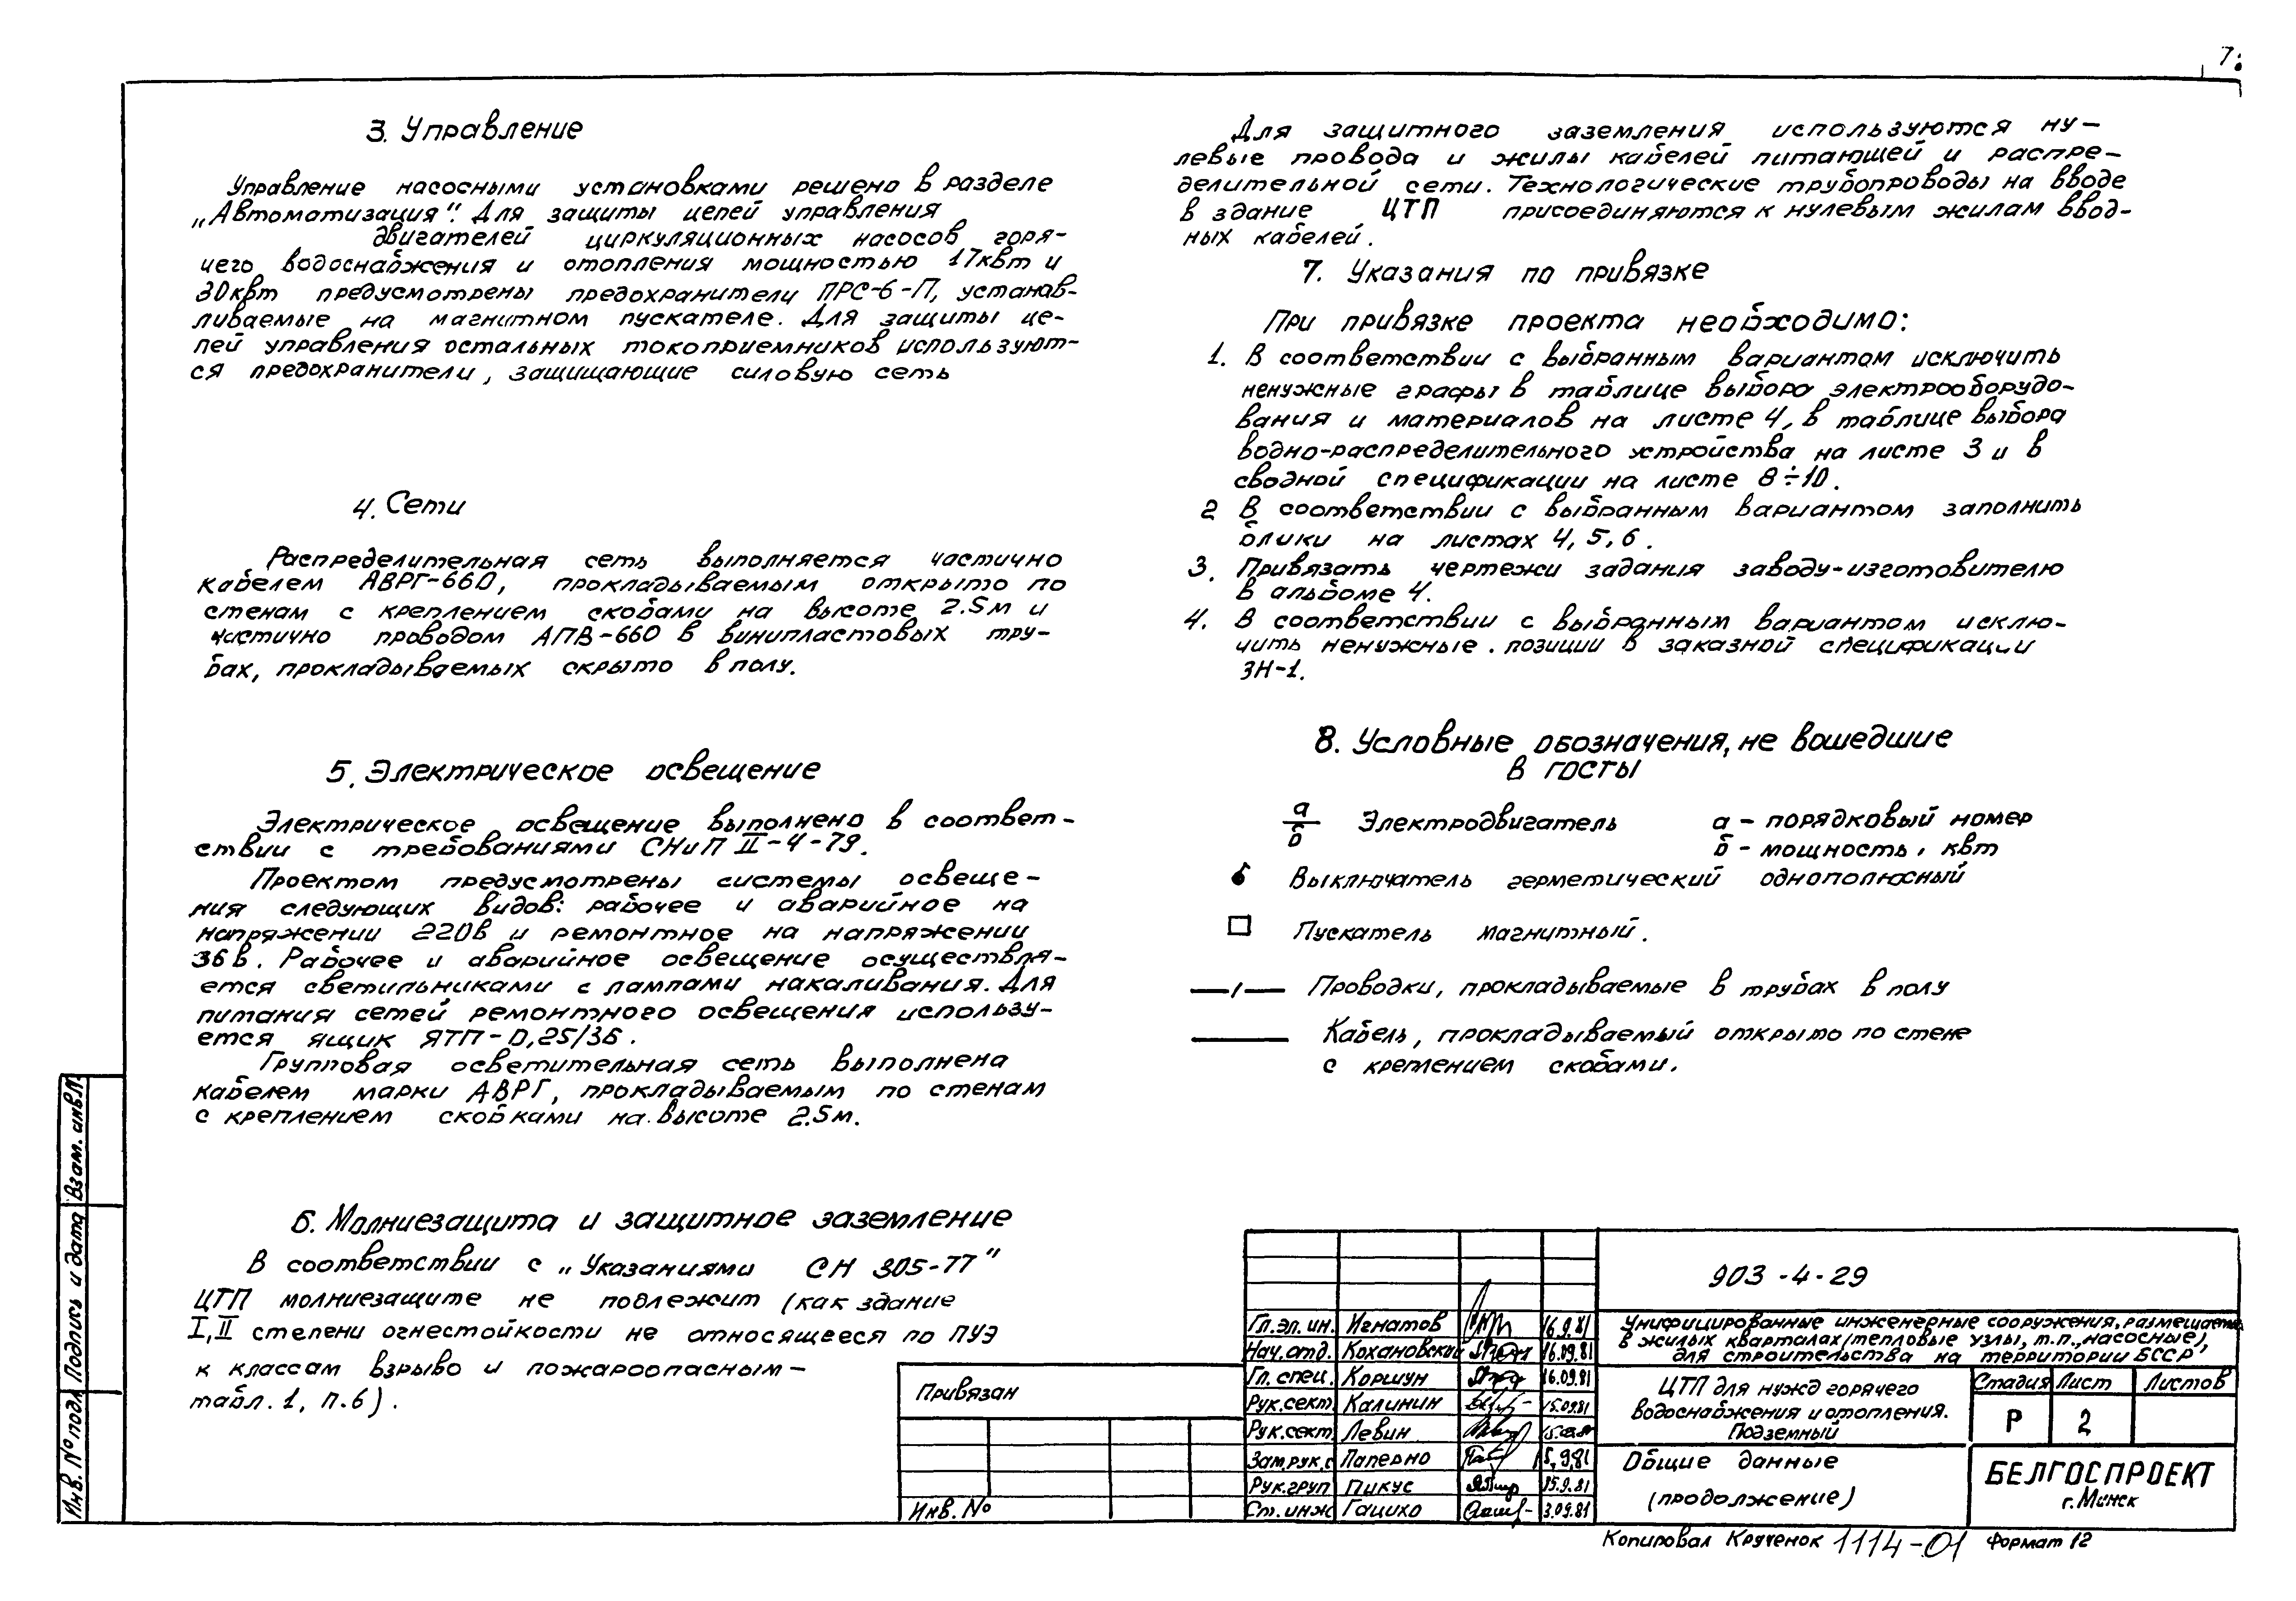 7.
3. Управление
Управление насосными установками решено в разделе
„Автоматизация". Для защиты цепей управления
двигателей циркуляционных насосов горя-
чего водоснабжения и отопления мощностью 17квт и
30квт предусмотрены предохранители ПРС-6-П, устанав-
ливаемые на магнитном пускателе. Для защиты це-
пей управления остальных токоприемников используют-
ся предохранители, защищающие силовую сеть
4. Сети
Распределительная сеть выполняется частично
кабелем АВРГ-660, прокладываемым открыто по
стенам с креплением скобами на высоте 2.5м и
частично проводом АПВ-660 в винипластовых тру-
бах, прокладываемых скрыто в полу.
5. Электрическое освещение
Электрическое освещение выполнено в соответ-
ствии с требованиями СНиП II-4-79.
Проектом предусмотрены системы освеще-
ния следующих видов: рабочее и аварийное на
напряжении 220в и ремонтное на напряжении
36в. Рабочее и аварийное освещение осуществля-
ется светильниками с лампами накаливания. Для
питания сетей ремонтного освещения использу-
ется ящик ЯТП-0,25/36.
Групповая осветительная сеть выполнена
кабелем марки АВРГ, прокладываемым по стенам
с креплением скобками на высоте 2.5м.
6. Молниезащита и защитное заземление
В соответствии с „Указаниями СН 305-77"
ЦТП молниезащите не подлежит (как здание
I, II степени огнестойкости не относящееся по ПУЭ
к классам взрыво и пожароопасным-
табл. 1, п.6).
Для защитного заземления используются ну-
левые провода и жилы кабелей питающей и распре-
делительной сети. Технологические трубопроводы на вводе
в здание ЦТП присоединяются к нулевым жилам ввод-
ных кабелей.
7. Указания по привязке
При привязке проекта необходимо:
1. В соответствии с выбранным вариантом исключить
ненужные графы в таблице выбора электрооборудо-
вания и материалов на листе 4, в таблице выбора
водно-распределительного устройства на листе 3 и в
сводной спецификации на листе 8÷10.
2 В соответствии с выбранным вариантом заполнить
блики на листах 4, 5, 6.
3. Привязать чертежи задания заводу-изготовителю
в альбоме 4.
4. В соответствии с выбранным вариантом исклю-
чить ненужные позиции в заказной спецификации
ЗН-1.
8. Условные обозначения, не вошедшие
в госты
а
б
Электродвигатель
а - порядковый номер
б - мощность, квт
Выключатель герметический однополюсный
Пускатель магнитный.
Проводки, прокладываемые в трубах в полу
Кабель, прокладываемый открыто по стене
с креплением скобами.
Взам. инв.N
Подпись и дата
Инв. № подл
Привязан
Инв. №
Гл.эл.ин. Игнатов 16.9.81
Нач.отд. Кохановский 16.09.81
Гл. спец. Коршун 16.09.81
Рук.сект. Калинин 15.09.81
Рук.сект. Левин
Зам.рук.с Паперно 15.9.81
Рук.груп Пикус 15.9.81
Ст.инж Гацихо 3.09.81
903-4-29
Унифицированные инженерные сооружения, размещаемые
в жилых кварталах (тепловые узлы, т.п., насосные),
для строительства на территории БССР
ЦТП для нужд горячего
водоснабжения и отопления.
Подземный
Стадия Лист Листов
Р 2
Общие данные
(продолжение)
БЕЛГОСПРОЕКТ
г. Минск
Копировал Крученок 1114-01 Формат 12